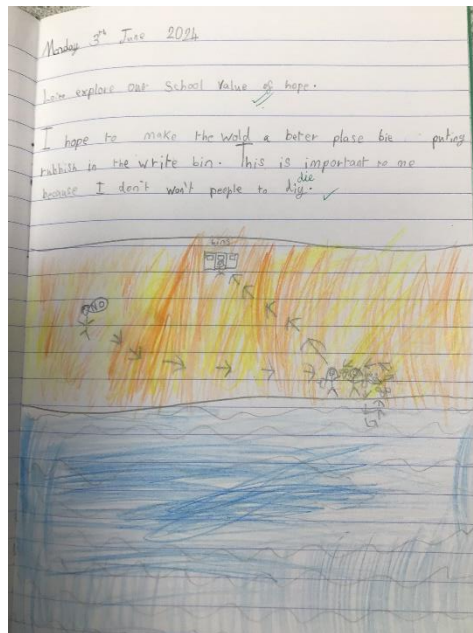 Monday 3rd June 2024
L.o: explore our School Value of hope.
I hope to make the wold a beter plase bie puting
rubbish in the write bin. This is important to me
becuase I don't won't people to diy. die
bins